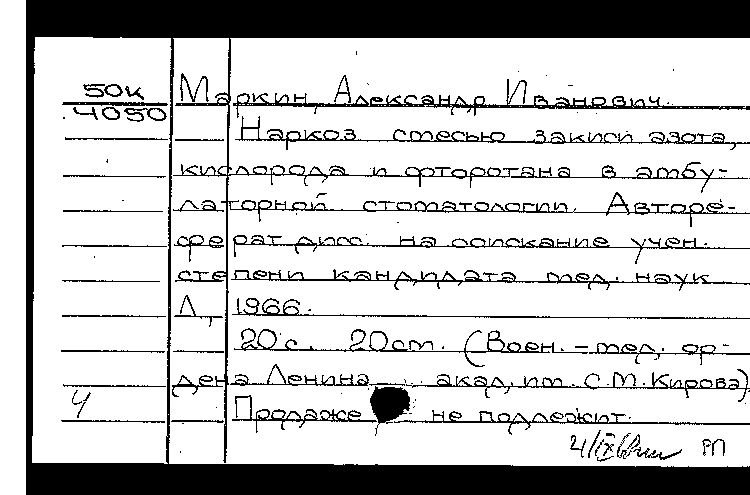 50к
4050
Маркин, Александр Иванович.
Наркоз смесью закиси азота,
кислорода и фторотана в амбу-
латорной стоматологии. Авторе-
ферат дисс. на соискание учен.
степени кандидата мед. наук
Л., 1966.
20 с. 20 см. (Воен.-мед. ор-
дена Ленина акад. им. С.М.Кирова)
Продаже не подлежит.
Ч
РП